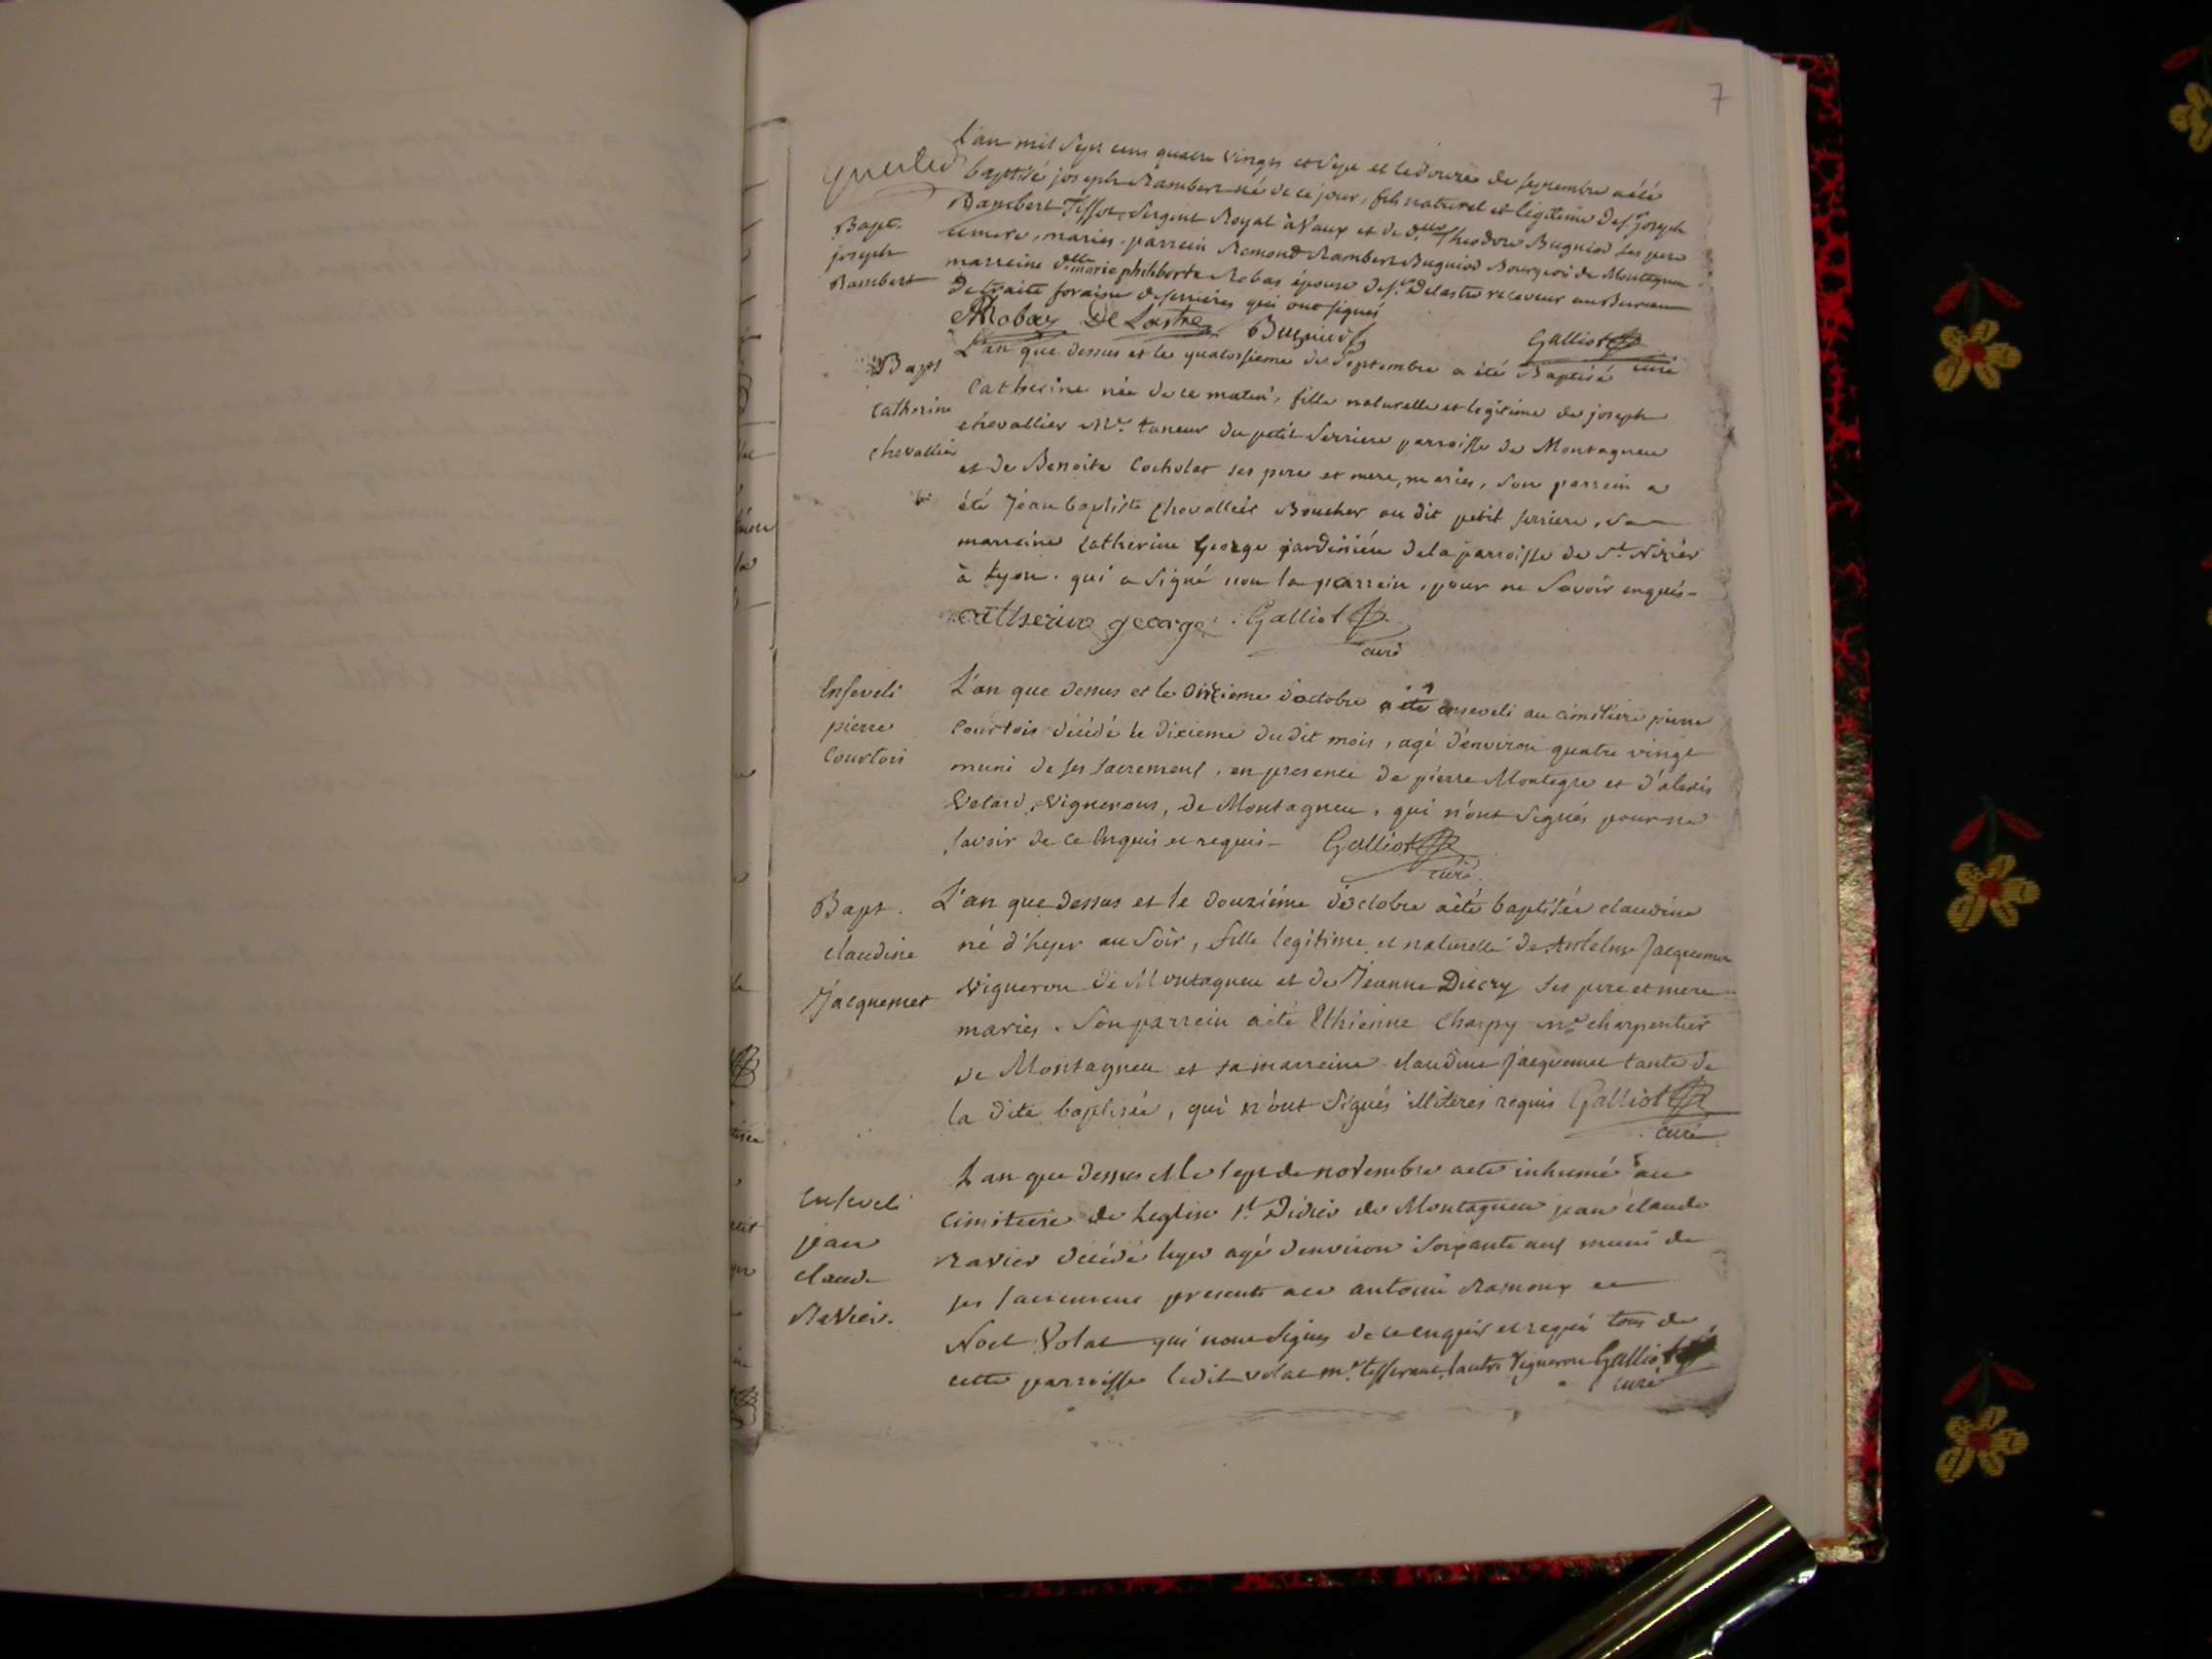 7
l'an mil sept cens quatre vingts et sept et le douze de septembre a été
baptisé joseph Rambert né de ce jour, fils naturel et légitime de sr. joseph
Rambert Tissot, sergent Royal à Vaux et de dlle Theodore Bugniod ses pere
et mere, mariés. parrein Remond Rambert Bugniod Bourgeois de Montagneu
marreine dlle marie philiberte Robas épouse de sr. Delastre receveur au Bureau
de traite foraine de serrières qui ont signés
Bapt.
joseph
Rambert
Robas De Lastre Bugniod Galliot
curé
Bapt
Catherine
chevallier
L'an que dessus et le quatorsieme de Septembre a été Baptisé
Catherine née de ce matin, fille naturelle et legitime de joseph
chevallier Me. taneur du petit Serriere parroisse de Montagneu
et de Benoite Cocholat ses pere et mere, mariés, son parrein a
été Jean baptiste Chevallier Boucher au dit petit serriere, sa
marreine Catherine George jardinière de la parroisse de St. Nizier
à Lyon. qui a signé non le parrein, pour ne savoir enquis-
catherine george. Galliot
curé
Enseveli
pierre
Courtois
L'an que dessus et le onzieme d'octobre a été enseveli au cimetiere pierre
Courtois décédé le dixieme du dit mois, agé d'environ quatre vingt
muni de ses sacremens, en presence de pierre Montegre et d'alexis
Velard, vignerons, de Montagneu, qui n'ont signés pour ne
savoir de ce enquis et requis- Galliot
curé.
Bapt.
claudine
Jacquemet
L'an que dessus et le douziéme d'octobre a été baptisée claudine
né d'hyer au soir, fille legitime et naturelle de Antelme Jacquemet
vigneron de Montagneu et de Jeanne Ducry ses pere et mere
mariés. Son parrein a été Ethienne Charpy me charpentier
de Montagneu et sa marreine claudine jacquemet tante de
la dite baptisée, qui n'ont signés illiteres requis Galliot
curé
Enseveli
jean
claude
Ravier.
L'an que dessus et le sept de novembre a été inhumé au
cimitiere de l'eglise St. Didier de Montagneu jean claude
ravier décédé hyer agé d'environ soixante ans muni de
ses sacremens presents antoine Ramoux et
Noel Volat qui n'ont signés de ce enquis et requis tous de
cette parroisse ledit volat me. tisserant, lautre vigneron Galliot
curé